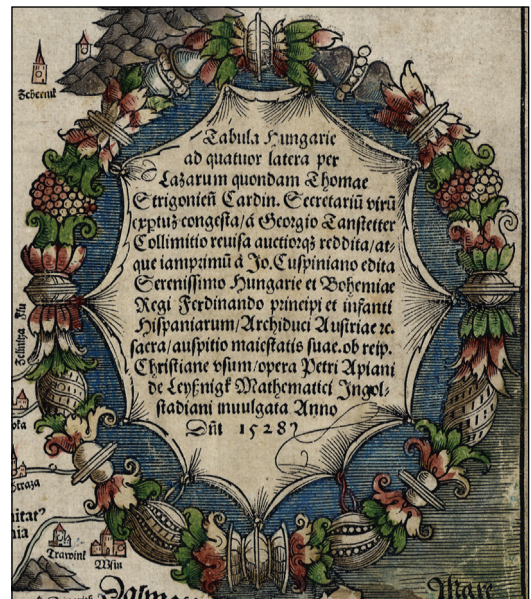 Scheenk
Tabula Hungarie
ad quatuor latera per
Lazarum quondam Thomae
Strigonieñ Cardin. Secretariũ virũ
exptuʒ congesta/á Georgio Tanstetter
Collimitio reuisa auctiorqʒ reddita/at⸗
que iamprimũ á Jo. Cuspiniano edita
Serenissimo Hungarie et Bohemiae
Regi Ferdinando principi et infanti
Hispaniarum/Archiduci Austriae ꝛc.
sacra/auspitio maiestatis suae. ob reip.
Christiane vsum/opera Petri Apiani
de Leyßnigk Mathematici Ingol⸗
stadiani inuulgata Anno
Dñi 1528
Straza
Trawink